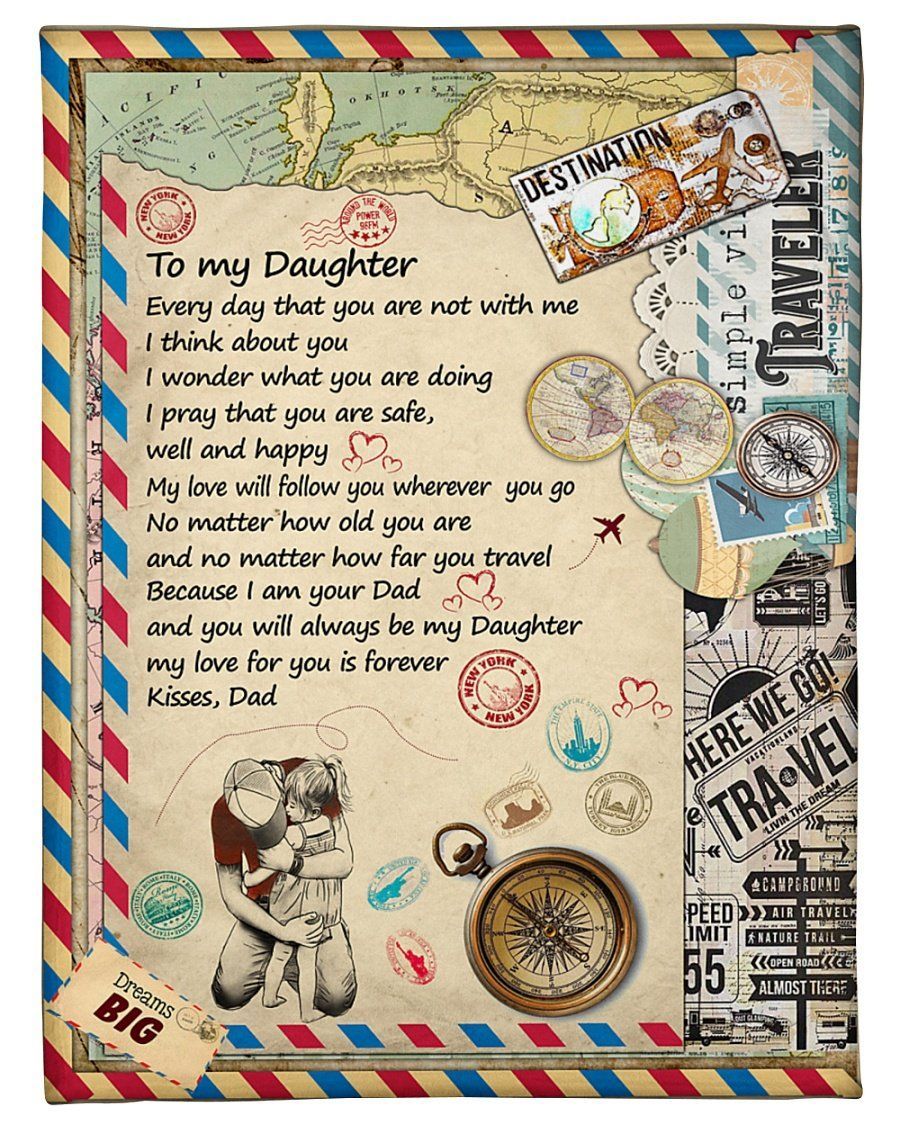 PACIFIC
OKHOTSK
A
DESTINATION
simple vi
TRAVELER
NEW YORK
NEW YORK
AROUND THE WORLD
POWER
96FM
To my Daughter
Every day that you are not with me
I think about you
I wonder what you are doing
I pray that you are safe,
well and happy
My love will follow you wherever you go
No matter how old you are
and no matter how far you travel
Because I am your Dad
and you will always be my Daughter
my love for you is forever
Kisses, Dad
NEW YORK
NEW YORK
THE EMPIRE STATE
N.Y. CITY
LET'S GO
HERE WE GO!
VACATIONLAND
TRAVEL
LIVIN THE DREAM
CAMPGROUND
AIR TRAVEL
NATURE TRAIL
OPEN ROAD
ALMOST THERE
OUT GLAMPING
PEED
IMIT
55
ROME ITALY
Dreams
BIG